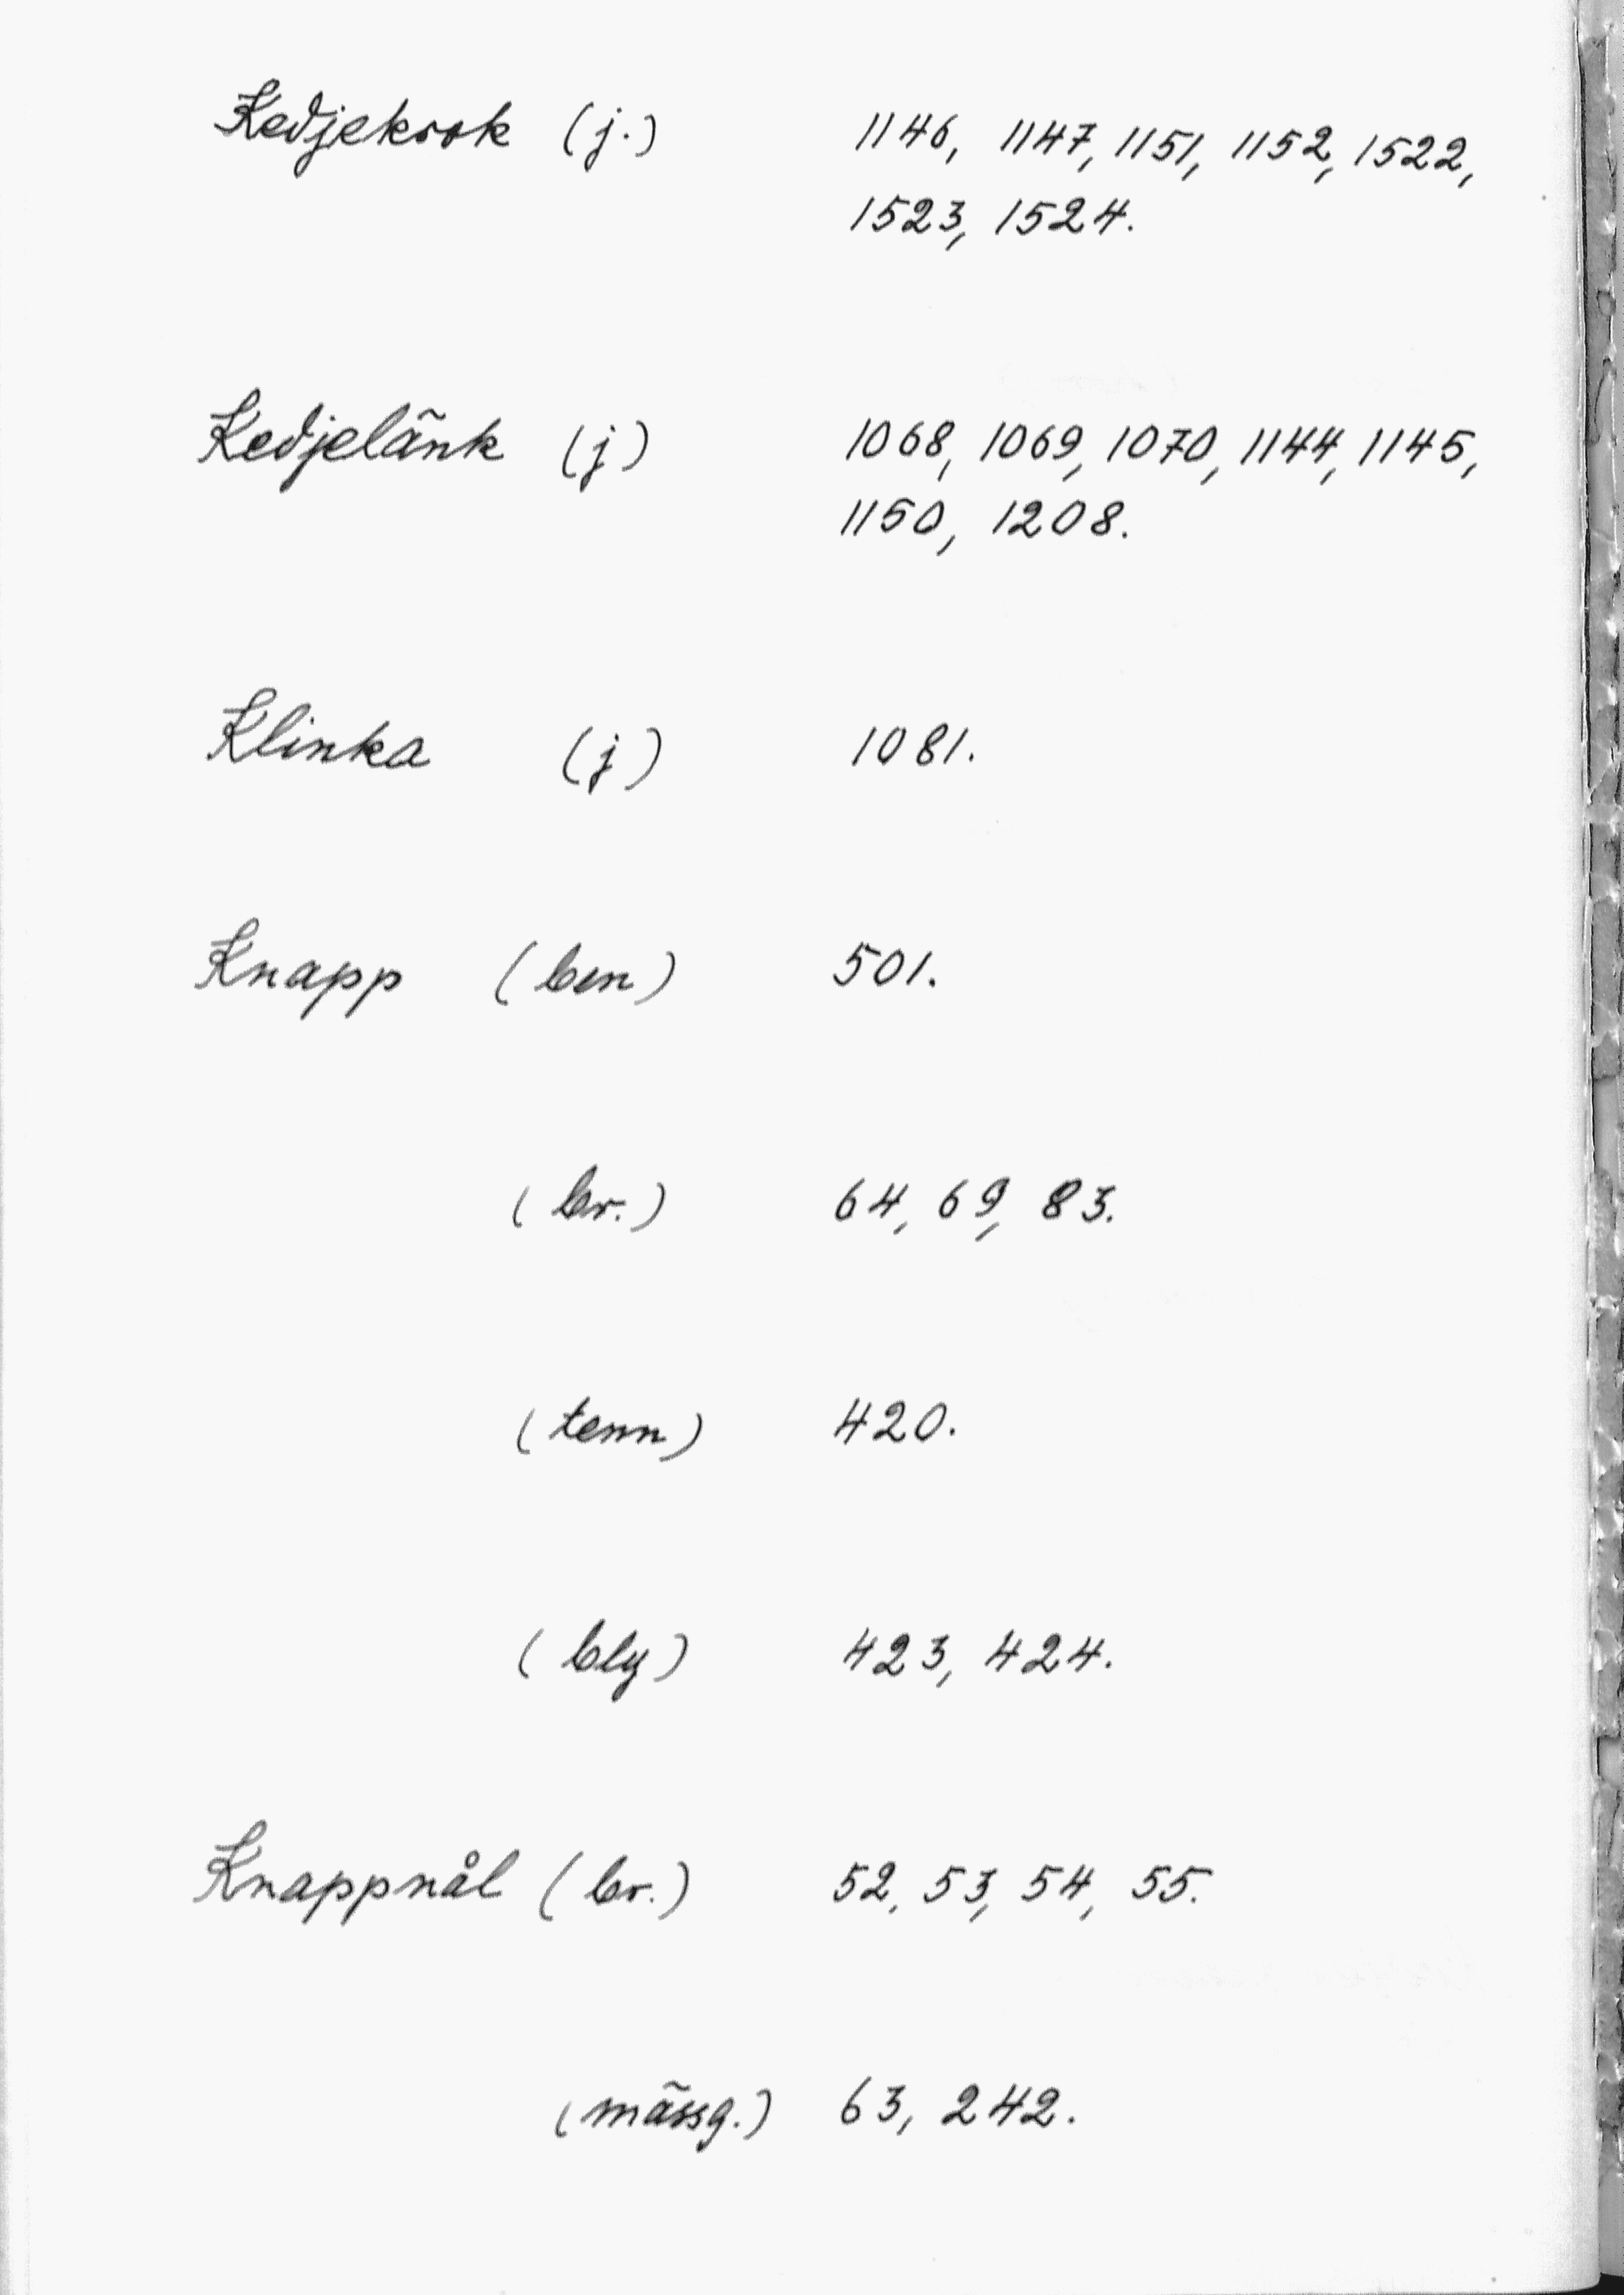 Kedjekrok (j.) 1146, 1147, 1151, 1152, 1522,
1523, 1524.
Kedjelänk (j) 1068, 1069, 1070, 1144, 1145,
1150, 1208.
Klinka (j) 1081.
Knapp (ben) 501.
(br.) 64, 69, 83.
(tenn) 420.
(bly) 423, 424.
Knappnål (br.) 52, 53, 54, 55.
(mässg.) 63, 242.